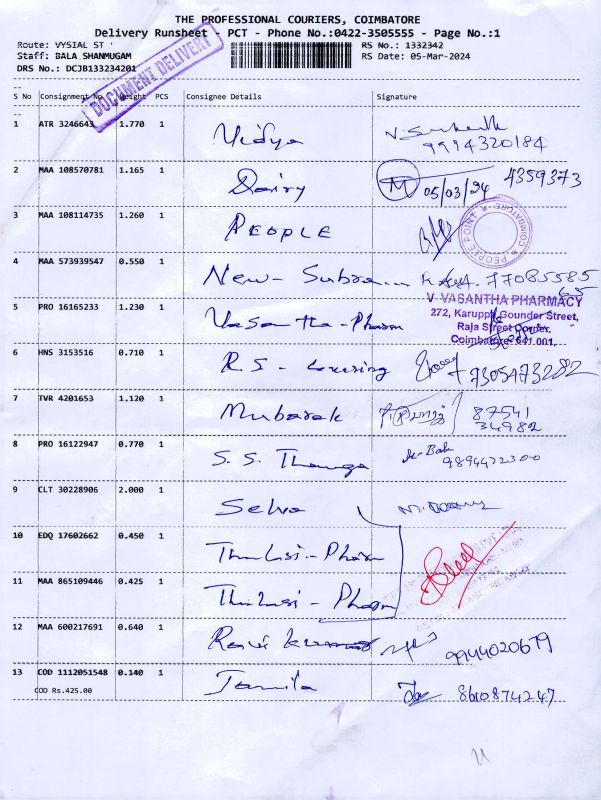 THE PROFESSIONAL COURIERS, COIMBATORE
Delivery Runsheet - PCT - Phone No.:0422-3505555 - Page No.:1
Route: VYSIAL ST '
Staff: BALA SHANMUGAM
DRS No.: DCJB133234201
RS No.: 1332342
RS Date: 05-Mar-2024
DOCUMENT DELIVERY
S No Consignment No Weight PCS Consignee Details Signature
1 ATR 3246643 1.770 1 Vidya 9994320184
2 MAA 108570781 1.165 1 Dairy M 05/03/24 4359373
3 MAA 108114735 1.260 1 PEOPLE
PEOPLE POINT ★ COIMBATORE ★
4 MAA 573939547 0.550 1 New - 77085585
65
5 PRO 16165233 1.230 1 Vasantha - Pharm
V VASANTHA PHARMACY
272, Karuppa Gounder Street,
Raja Street Corner,
Coimbatore - 641 001.
6 HNS 3153516 0.710 1 R.S - 7305473282
7 TVR 4201653 1.120 1 Mubarak 87541
34982
8 PRO 16122947 0.770 1 S. S. Thanga 9894472300
9 CLT 30228906 2.000 1 Selva
10 EDQ 17602662 0.450 1 Thulasi - Pharm
11 MAA 865109446 0.425 1 Thulasi - Pharm
12 MAA 600217691 0.640 1 Ravi kumar 9944020679
13 COD 1112051548 0.140 1 Jamila 8610874247
COD Rs.425.00